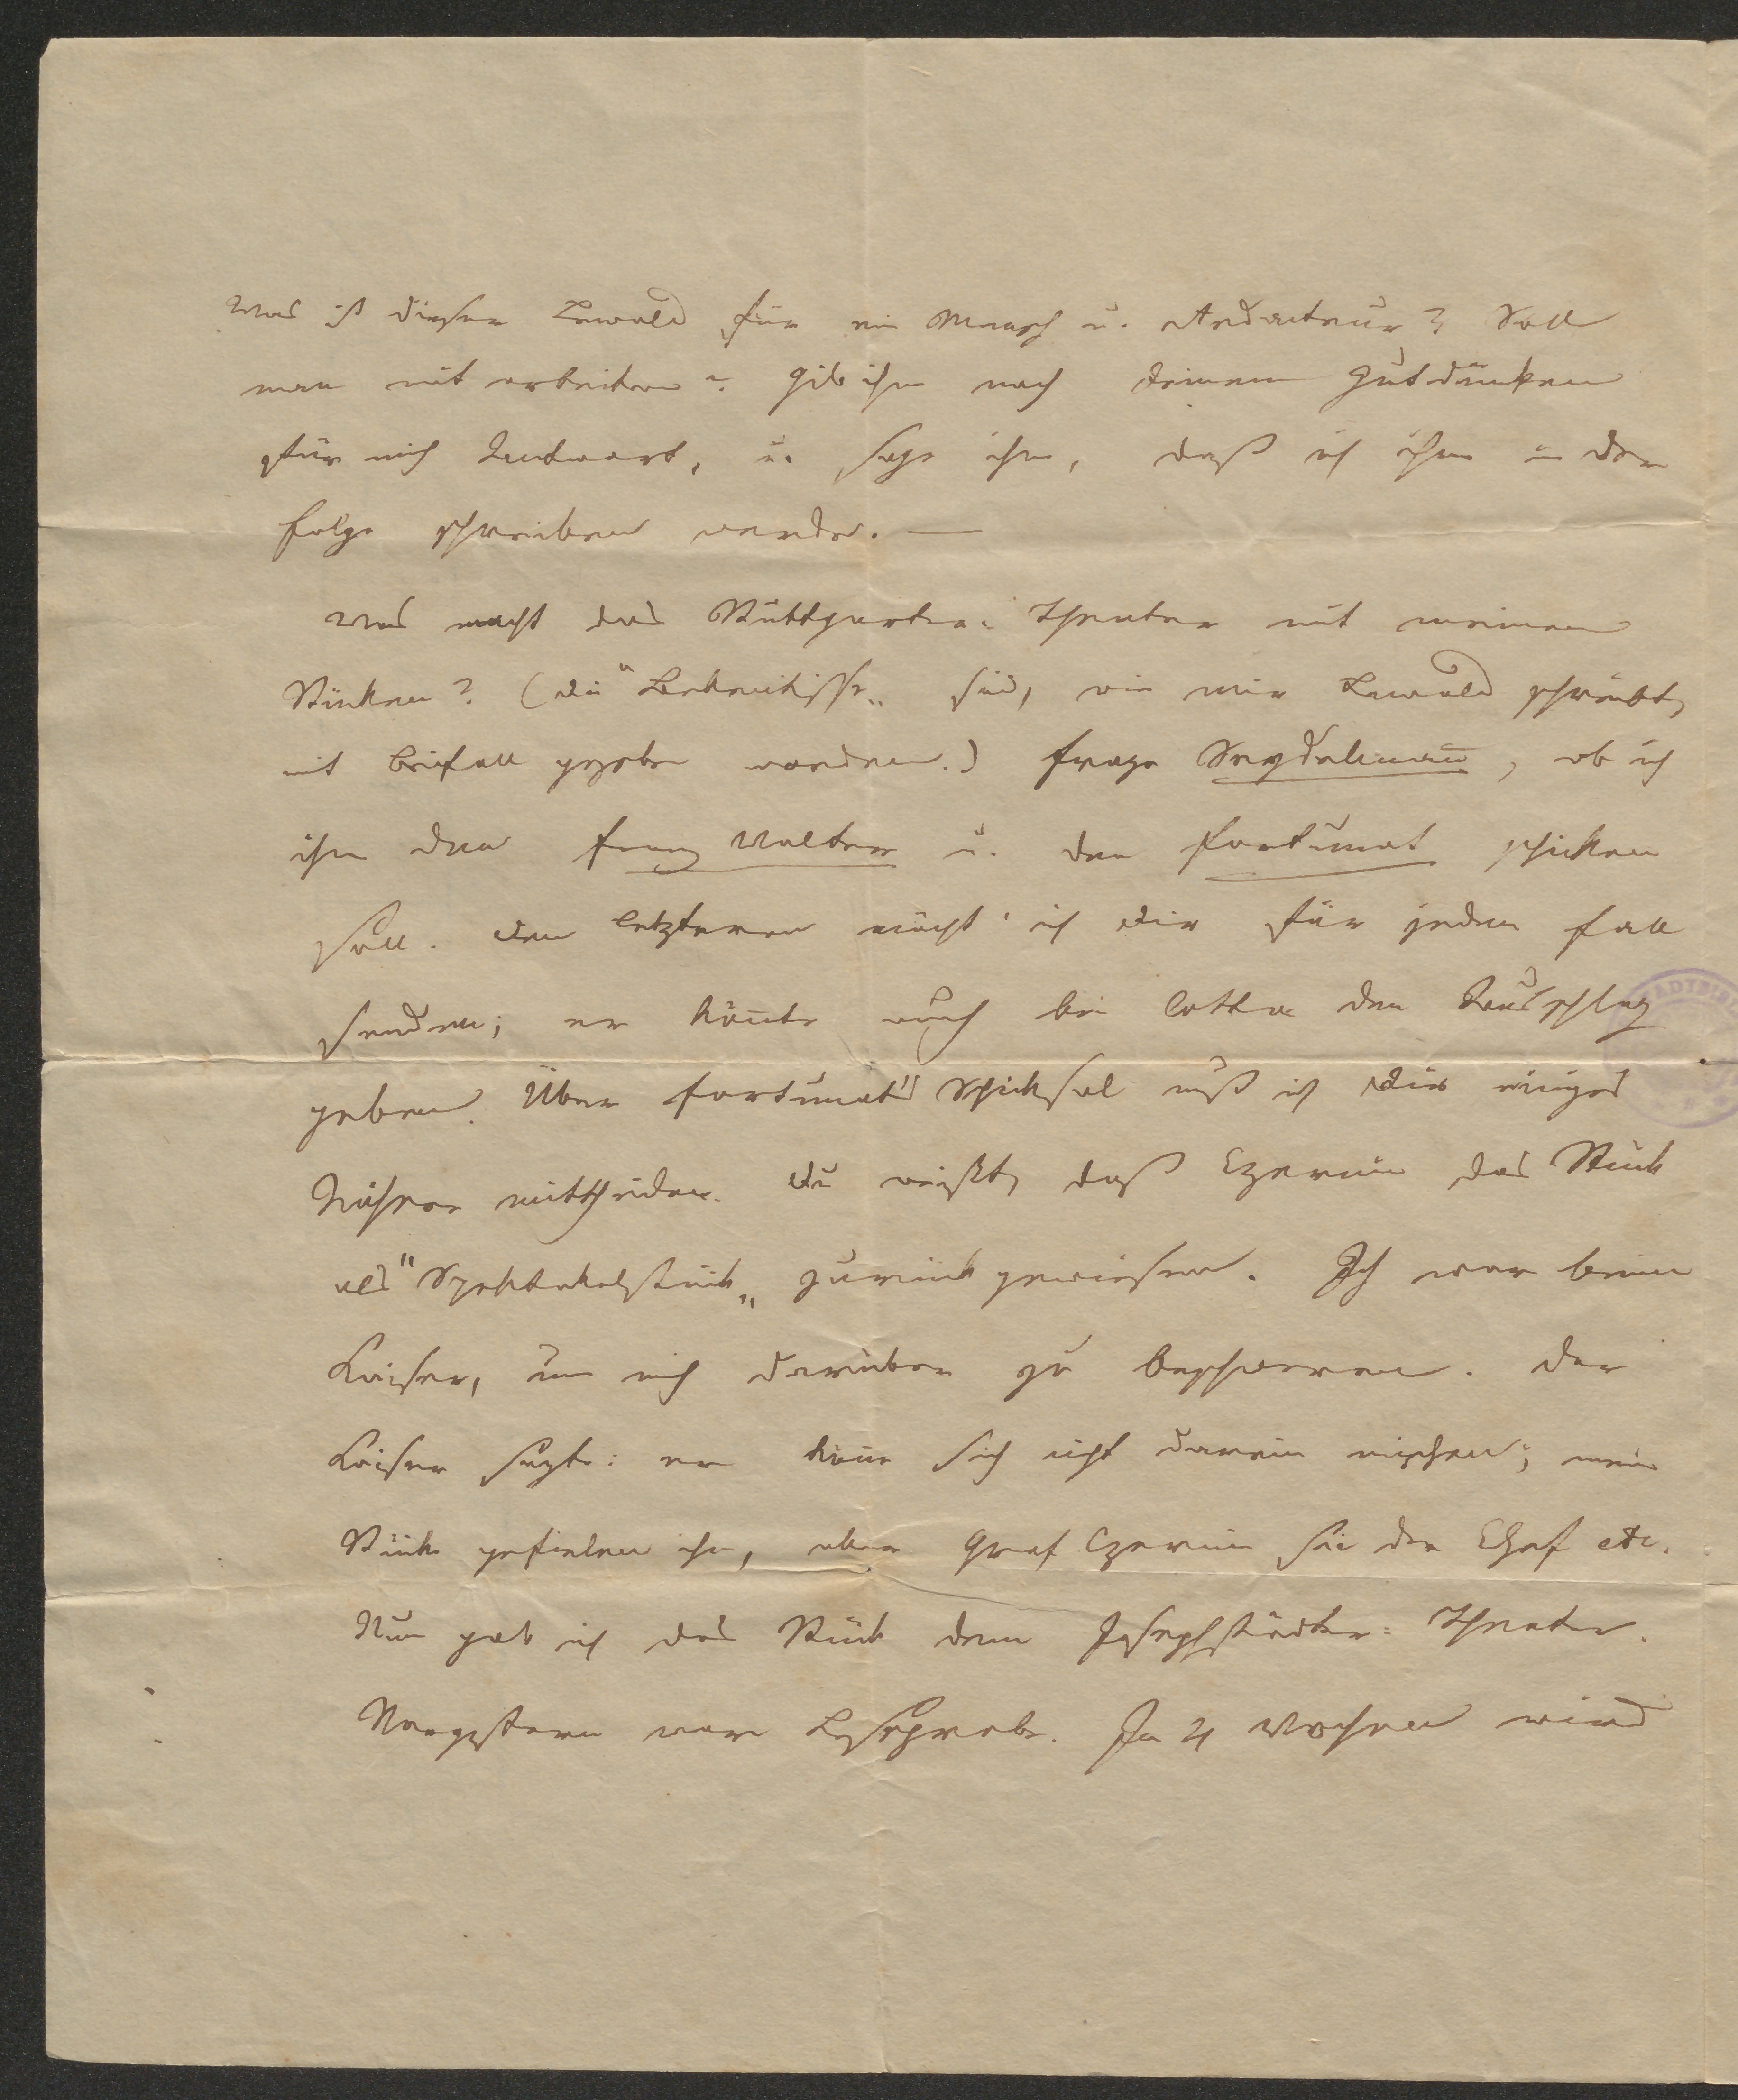 Was ist dieser Lewald für ein Mensch u. Redacteur? Soll
man mit arbeiten? Gib ihm nach deinem Gutdünken
für mich Antwort, u. sage ihm, daß ich ihm in der
Folge schreiben werde. —
Was macht das Stuttgarter-Theater mit meinen
Stücken? (die "Bekentnisse" sind, wie mir Lewald schreibt,
mit Beifall gegeben worden.) Frage Seydelmann, ob ich
ihm den Franz Walter u. den Fortunat schicken
soll. Den letzteren möcht' ich dir für jeden Fall
senden; er könte auch bei Cotta den Ausschlag
geben. Über Fortunat's Schicksal muß ich dir einiges
Nähere mittheilen. Du weißt, daß Czernin das Stück
als "Spektakelstück" zurück gewiesen. Ich war beim
Kaiser, um mich darüber zu beschweren. Der
Kaiser sagte: er könne sich nicht darein mischen; meine
Stücke gefielen ihm, aber Graf Czernin sei der Chef etc.
Nun gab ich das Stück dem Josephstädter-Theater.
Vorgestern war Leseprobe. In 4 Wochen wird